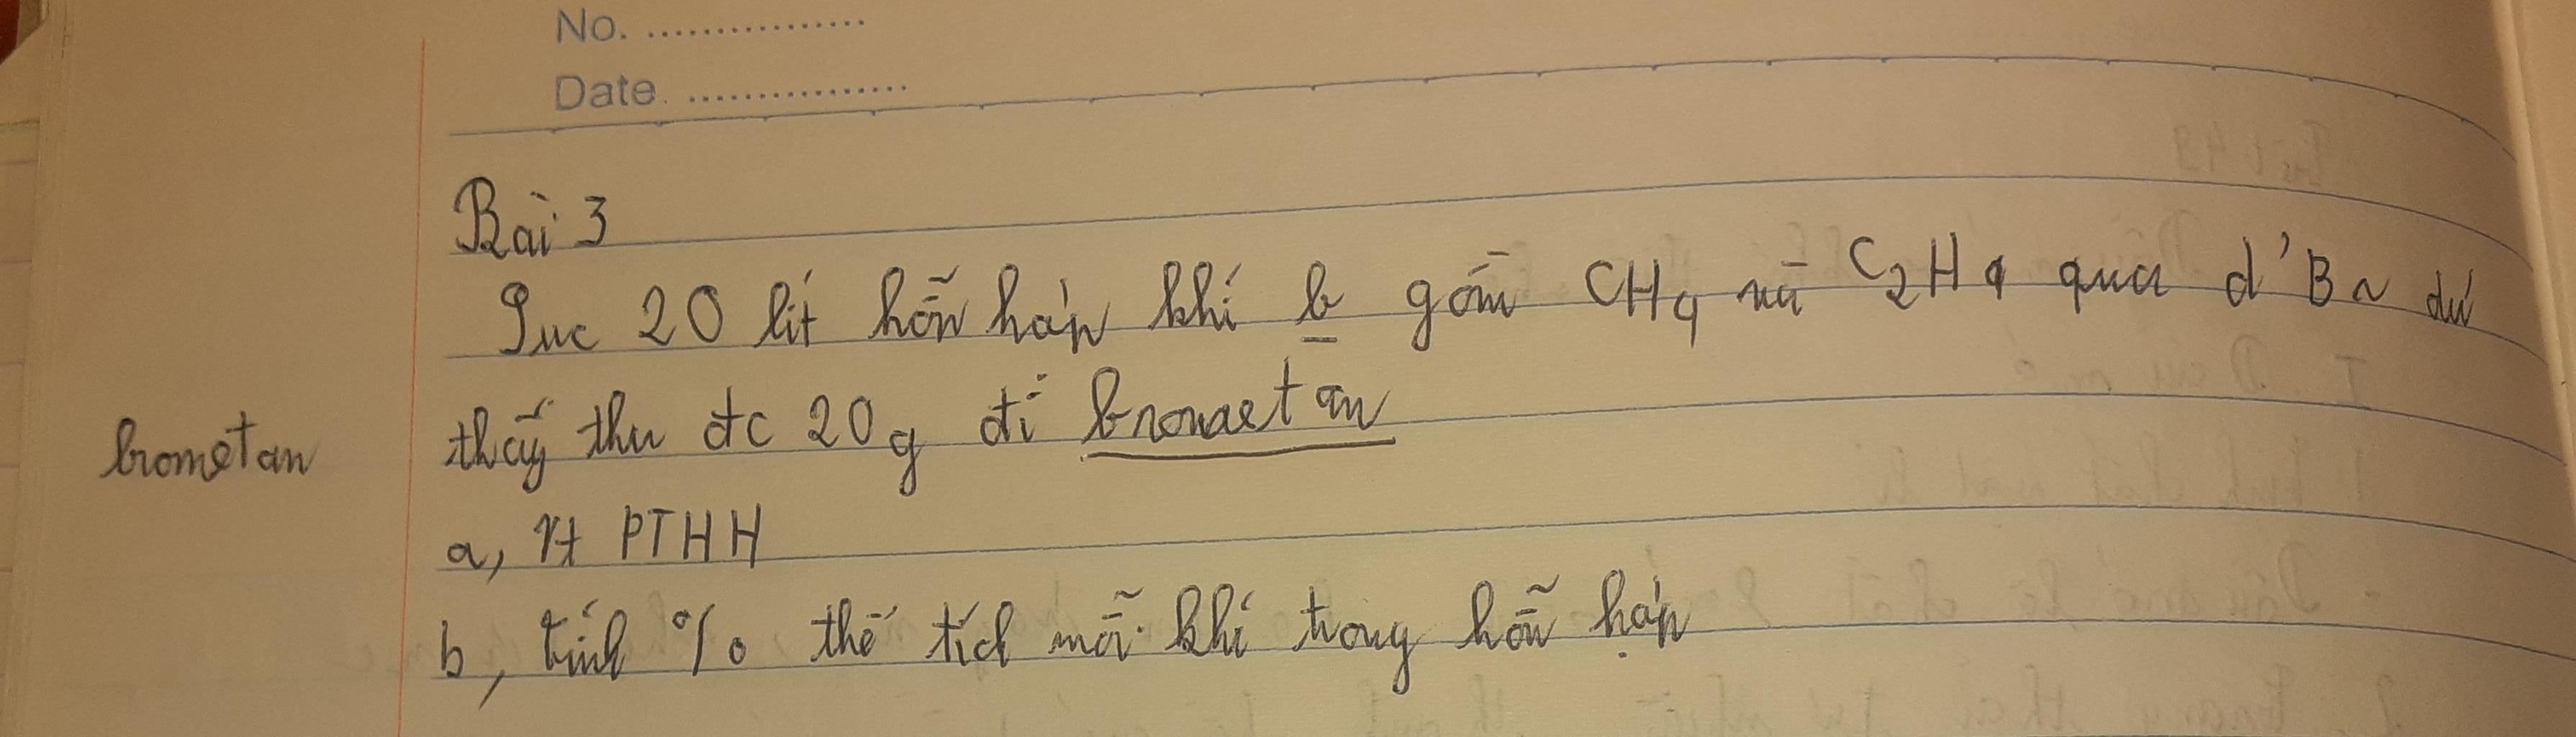 No. ................
Date. ................
Bài 3
Sục 20 lít hỗn hợp khí b gồm CH4 và C2H4 qua d' Br dư
brometan
thấy thu đc 20g đi bromaetan
a, Vt PTHH
b, tính % thể tích mỗi khí trong hỗn hợp